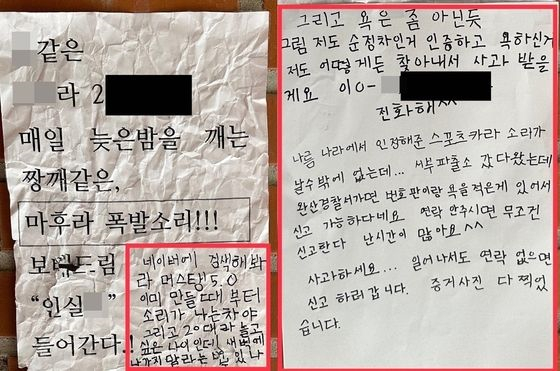 같은
라 2
매일 늦은밤을 깨는
짱깨같은,
마후라 폭발소리!!!
보배드림
“인실
들어간다.!
네이버에 검색해봐
라 머스탱 5.0
이미 만들때부터
소리가 나는차야
그리고 20대라 놀고
싶은 나이인데 새벽에
나가지 말라는 법 있나
그리고 욕은 좀 아닌듯
그럼 저도 순정차인거 인증하고 욕하신거
저도 어떻게든 찾아내서 사과 받을
게요 이0-
전화해^^
나름 나라에서 인정해준 스포츠카라 소리가
날수밖에 없는데... 서부파출소 갔다왔는데
완산경찰서가면 번호판이랑 욕을 적은게 있어서
신고 가능하다네요 연락 안주시면 무조건
신고한다 난시간이 많아요^^
사과하세요... 일어나서도 연락 없으면
신고 하러갑니다. 증거사진 다 찍었
습니다.